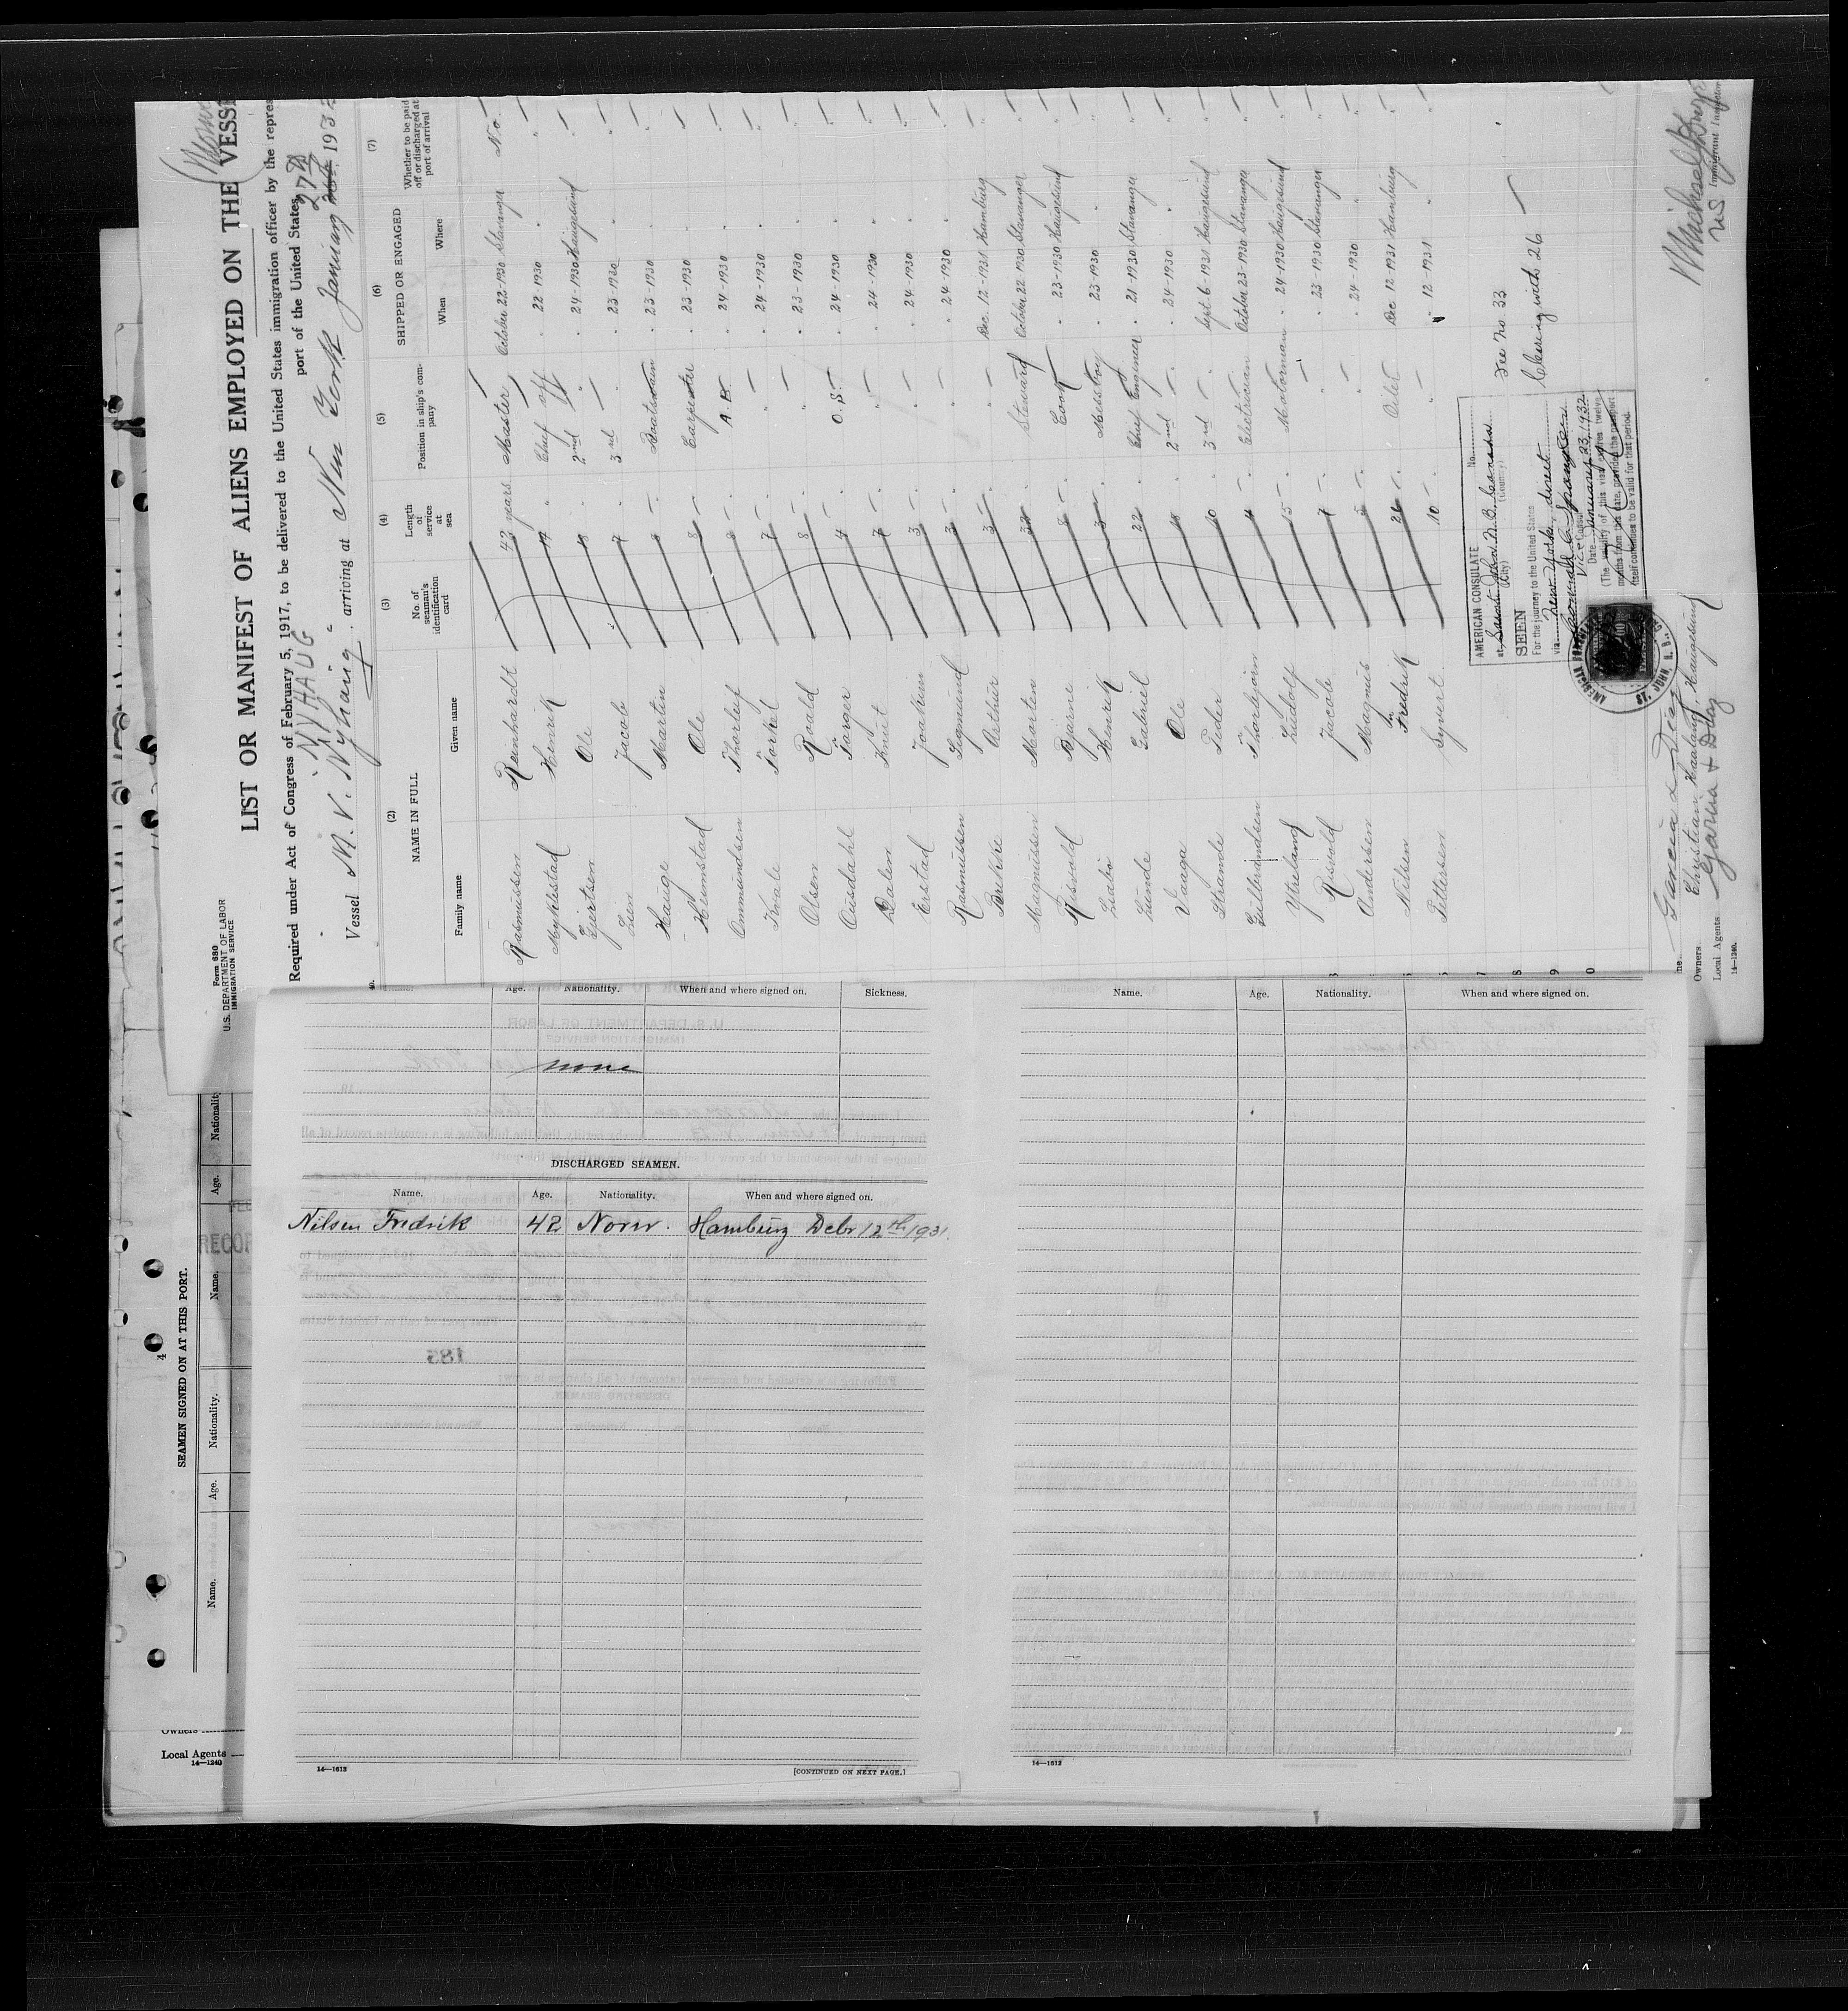 Form 680
U.S. DEPARTMENT OF LABOR
IMMIGRATION SERVICE
LIST OR MANIFEST OF ALIENS EMPLOYED ON THE VESSE
Required under Act of Congress of February 5, 1917, to be delivered to the United States immigration officer by the repres
port of the United States
"NYHAUG"
27th
Vessel M.V. "Nyhaug" arriving at New York January 26th 1932
(2) (3) (4) (5) (6) (7)
NAME IN FULL
Family name Given name
No. of seaman's identification card
Length of service at sea
Position in ship's company
SHIPPED OR ENGAGED
When Where
Whether to be paid off or discharged at port of arrival
Rasmussen Reinhardt 42 years Master October 22-1930 Stavanger No
Myklestad Henrik " Chief off " 22-1930 "
Gjertsen Ole " 2nd " " 24-1930 Haugesund "
Lien Jacob 7 " 3rd " " 23-1930 " "
Hauge Martin Boatswain " 23-1930 "
Hemstad Ole 8 Carpenter " 23-1930 "
Ommundsen Thorleif A.B. " 24-1930 "
Kvale Torkel 7 " " 24-1930 "
Olsen Roald 8 " " 23-1930 "
Ousdahl Torger 4 O.S. " 24-1930 "
Dalen Knut " " 24-1930 "
Erstad Joakim 3 " " 24-1930 "
Rasmussen Sigmund 3 " " 24-1930 "
Bakke Arthur 3 " Dec. 12-1931 Hamburg "
Magnussen Marten 32 Steward October 22 1930 Stavanger "
Risvold Bjarne 8 Cook " 23-1930 Haugesund "
Henrik 3 Messboy " 23-1930 " "
Lunde Gabriel 22 Chief Engineer " 21-1930 Stavanger "
Vaaga Ole 2nd " " 24-1930 " "
Strande Peder 10 3rd " Sept. 6-1931 Haugesund "
Gullbrandsen Thorbjørn 4 Electrician October 23-1930 Stavanger "
Ytreland Ludolf 15 Motorman " 24-1930 Haugesund "
Risvold Jacob 7 " " 23-1930 Stavanger "
Andersen Magnus " " 24-1930 " "
Nilsen Fredrik 26 Oiler Dec 12-1931 Hamburg "
Pettersen Syvert 10 " " 12-1931 " "
See No. 33
Clearing with 26
AMERICAN CONSULATE No.
at Saint John N.B. Canada
(City) (Country)
SEEN
For the journey to the United States
via New York direct
Vice Consul
Date January 23, 1932
(The validity of this visa expires twelve
months from this date, provided the passport
itself continues to be valid for that period.
ST. JOHN, N.B.
Garcia & Diaz
Owners Christian Haaland, Haugesund
Local Agents Garcia & Diaz
14—1240
Immigrant Inspector
Age. Nationality. When and where signed on. Sickness.
none
DISCHARGED SEAMEN.
Name. Age. Nationality. When and where signed on.
Nilsen Fredrik 42 Norw. Hamburg Debr 12th 1931.
14—1613
[CONTINUED ON NEXT PAGE.]
Name. Age. Nationality. When and where signed on.
14—1613
SEAMEN SIGNED ON AT THIS PORT.
Name. Age. Nationality. Name. Age. Nationality
4
RECO
Owners
Local Agents
14—1240